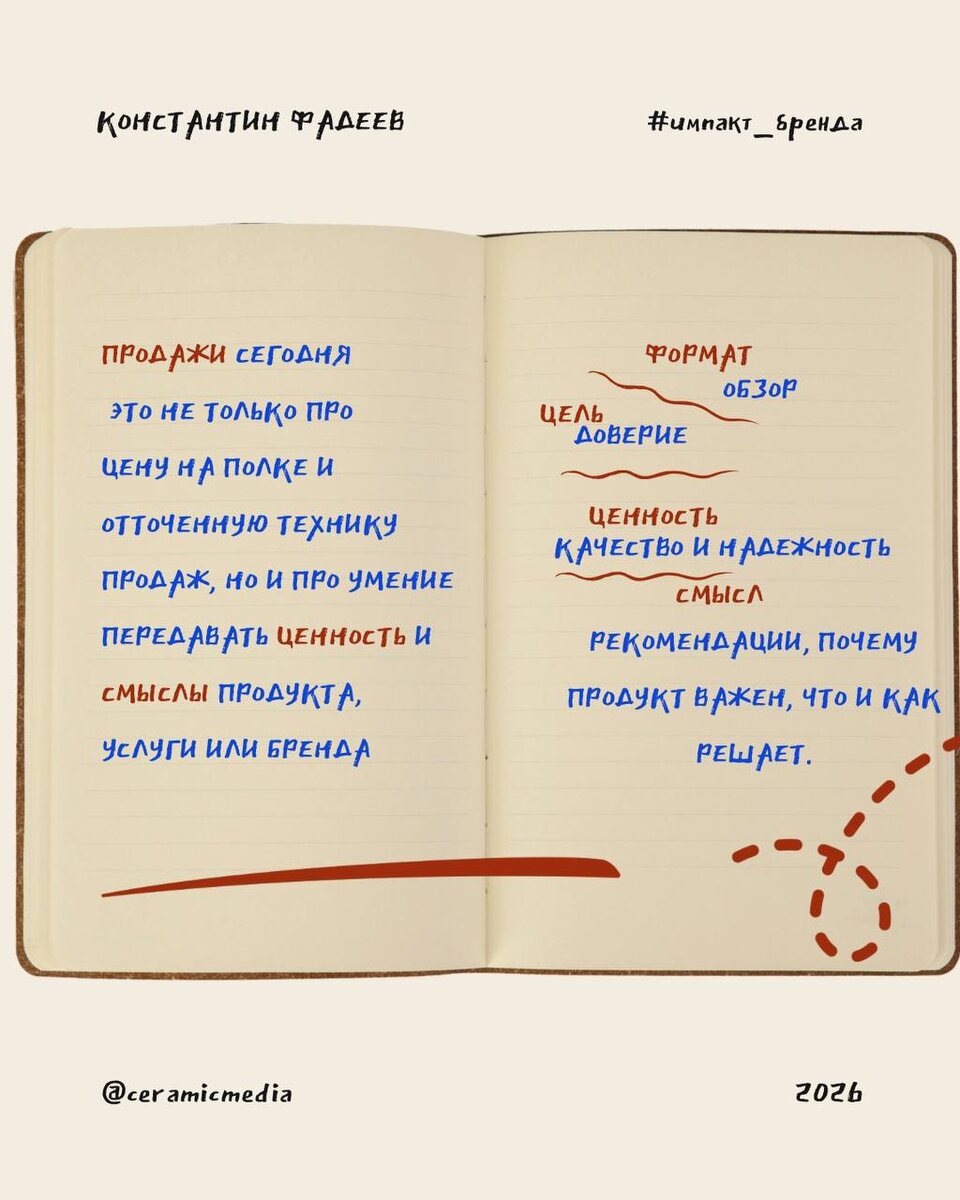 КОНСТАНТИН ФАДЕЕВ
#импакт_бренда
ПРОДАЖИ СЕГОДНЯ
ЭТО НЕ ТОЛЬКО ПРО
ЦЕНУ НА ПОЛКЕ И
ОТТОЧЕННУЮ ТЕХНИКУ
ПРОДАЖ, НО И ПРО УМЕНИЕ
ПЕРЕДАВАТЬ ЦЕННОСТЬ И
СМЫСЛЫ ПРОДУКТА,
УСЛУГИ ИЛИ БРЕНДА
ФОРМАТ
ОБЗОР
ЦЕЛЬ
ДОВЕРИЕ
ЦЕННОСТЬ
КАЧЕСТВО И НАДЕЖНОСТЬ
СМЫСЛ
РЕКОМЕНДАЦИИ, ПОЧЕМУ
ПРОДУКТ ВАЖЕН, ЧТО И КАК
РЕШАЕТ.
@ceramicmedia
2026